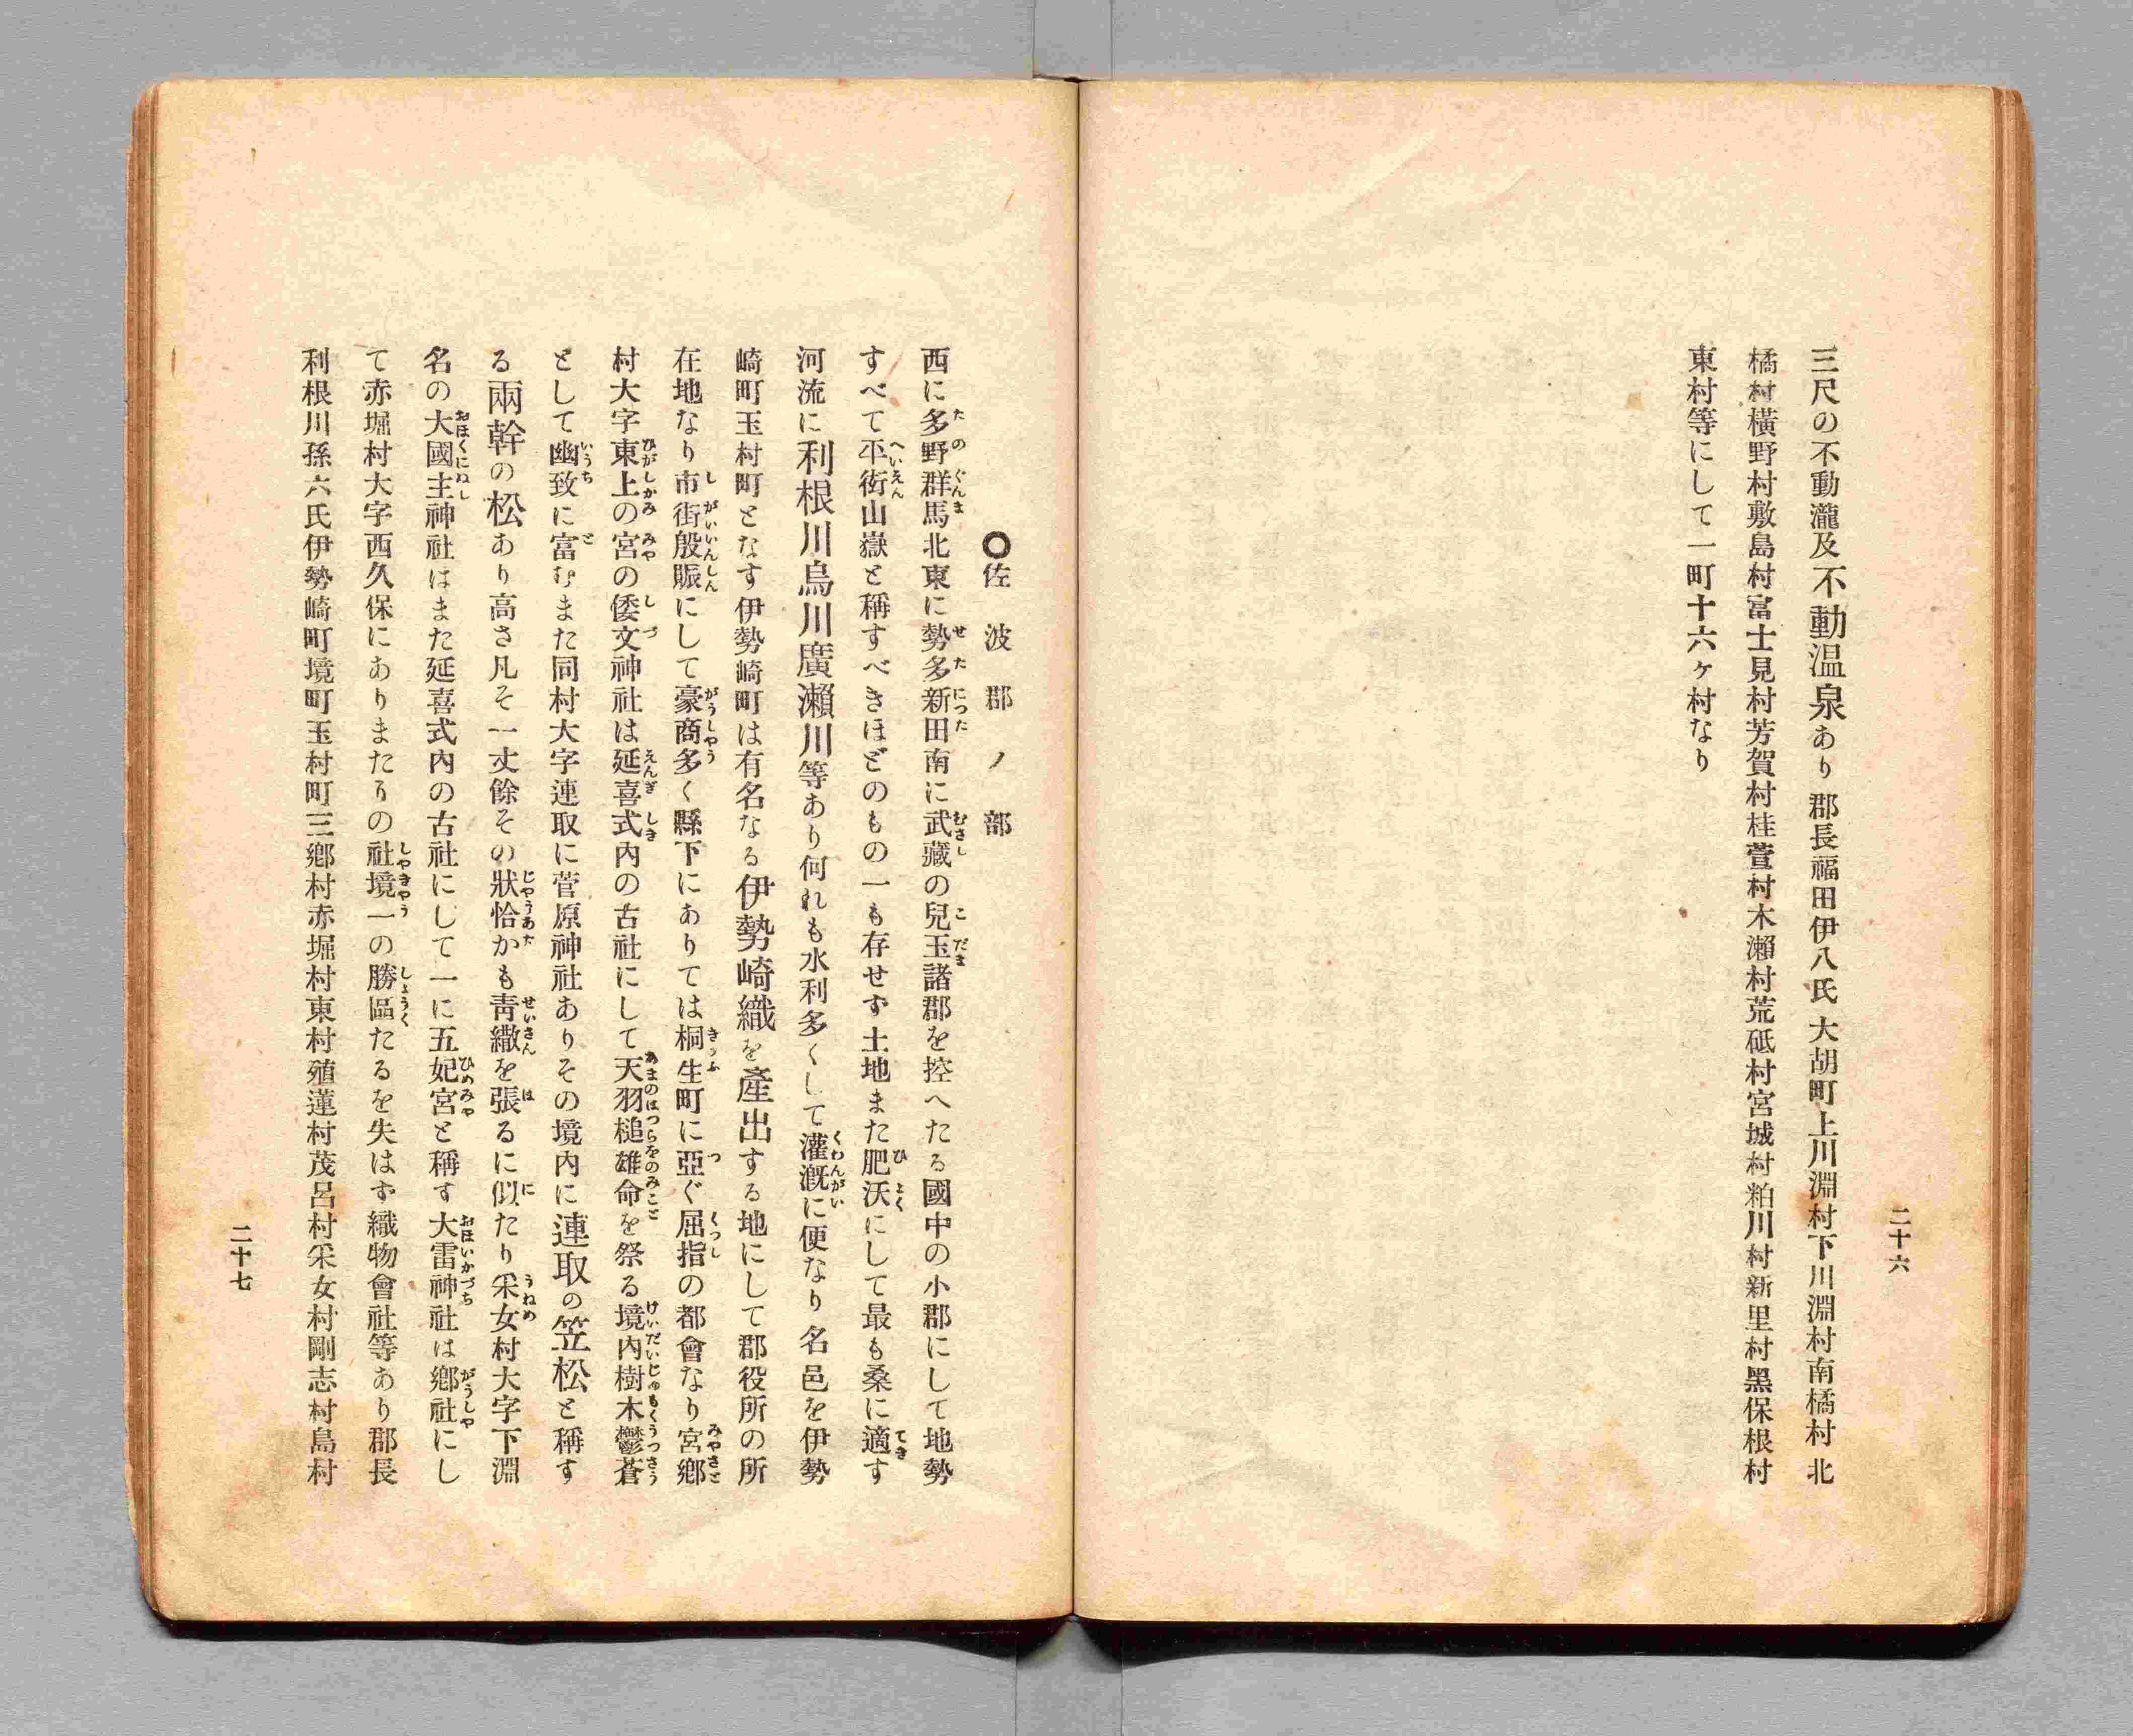 三尺の不動瀧及不動温泉あり郡長福田伊八氏大胡町上川淵村下川淵村南橘村北
橘村横野村敷島村富士見村芳賀村桂萱村木瀬村荒砥村宮城村粕川村新里村黑保根村
東村等にして一町十六ヶ村なり
二十六
○佐波郡ノ部
西に多野群馬北東に勢多新田南に武藏の兒玉諸郡を控へたる國中の小郡にして地勢
すべて平衍山嶽と稱すべきほどのもの一も存せず土地また肥沃にして最も桑に適す
河流に利根川烏川廣瀨川等あり何れも水利多くして灌漑に便なり名邑を伊勢
崎町玉村町となす伊勢崎町は有名なる伊勢崎織を產出する地にして郡役所の所
在地なり市街殷賑にして豪商多く縣下にありては桐生町に亞ぐ屈指の都會なり宮鄕
村大字東上の宮の倭文神社は延喜式內の古社にして天羽槌雄命を祭る境內樹木鬱蒼
として幽致に富むまた同村大字連取に菅原神社ありその境內に連取の笠松と稱す
る兩幹の松あり高さ凡そ一丈餘その狀恰かも靑繖を張るに似たり采女村大字下淵
名の大國主神社はまた延喜式內の古社にして一に五妃宮と稱す大雷神社は鄕社にし
て赤堀村大字西久保にありまたりの社境一の勝區たるを失はず織物會社等あり郡長
利根川孫六氏伊勢崎町境町玉村町三鄕村赤堀村東村殖蓮村茂呂村采女村剛志村島村
二十七